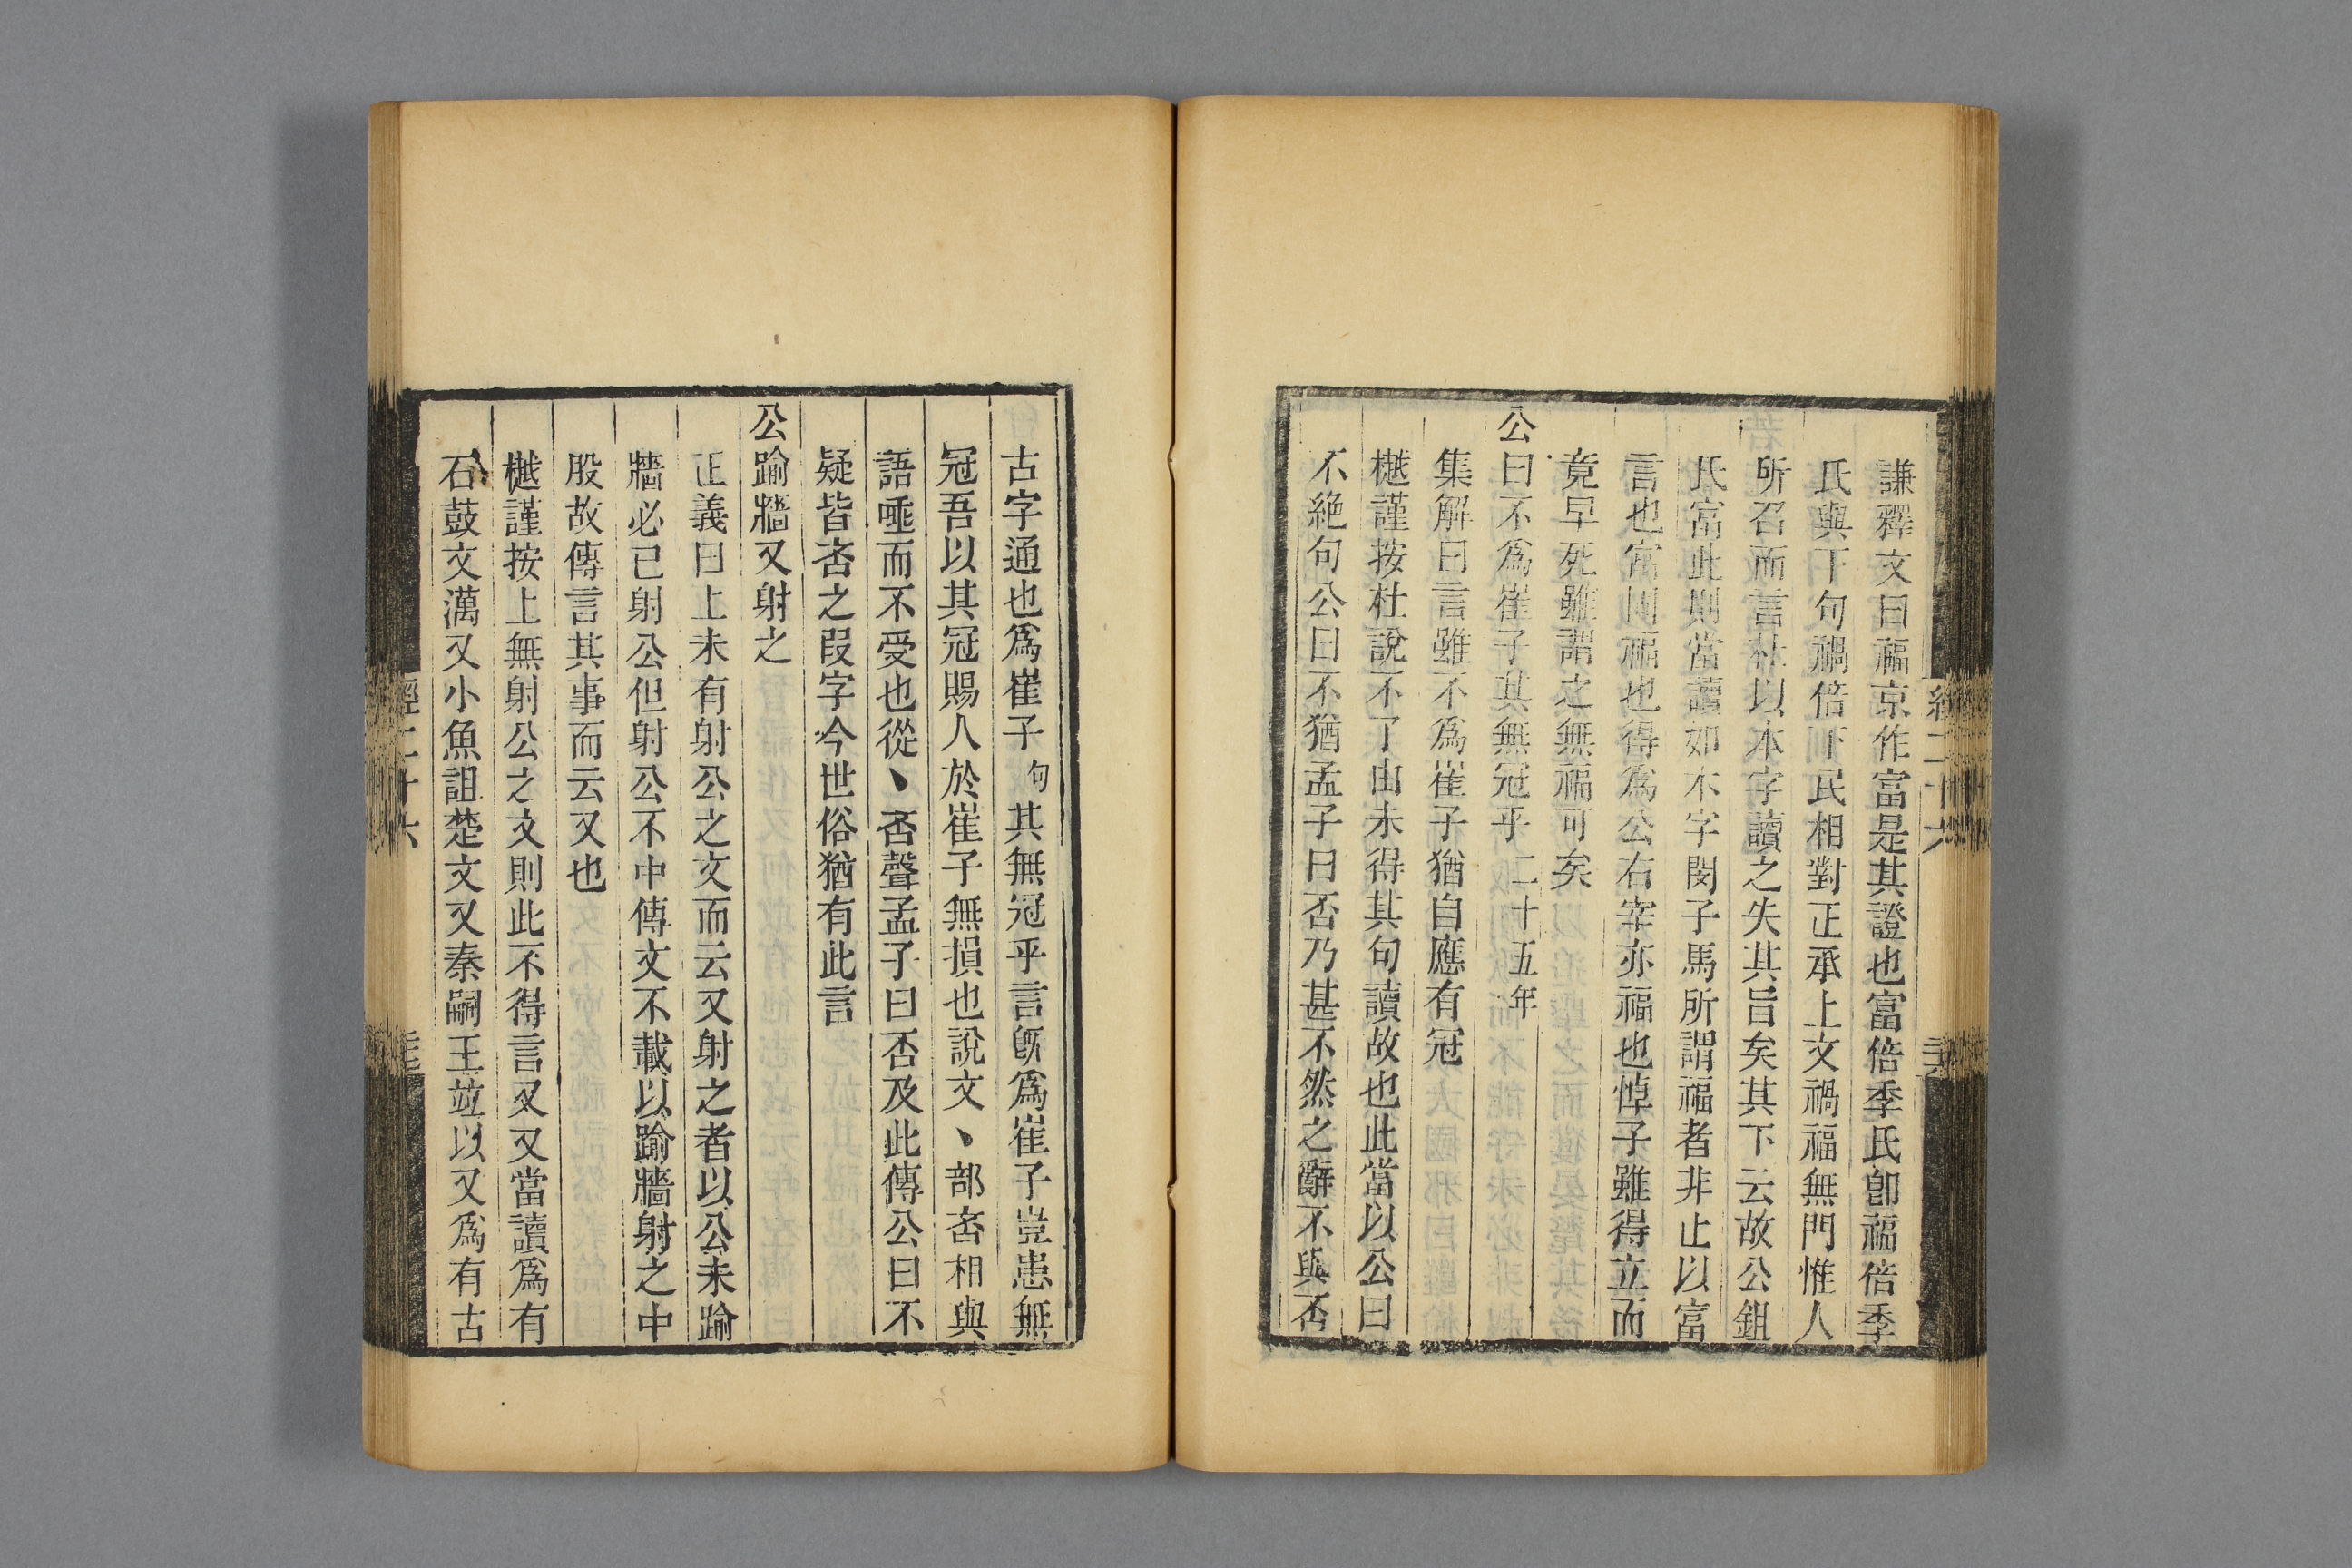 謙釋文曰福京作富是其證也富倍季氏卽福倍季
氏與下句禍倍下民相對正承上文禍福無門惟人
所召而言杜以本字讀之失其旨矣其下云故公鉏
氏富此則當讀如本字閔子馬所謂福者非止以富
言也富固福也得爲公右宰亦福也悼子雖得立而
竟早死雖謂之無福可矣
公曰不爲崔子其無冠乎二十五年
集解曰言雖不爲崔子猶自應有冠
樾謹按杜說不了由未得其句讀故也此當以公曰
不絕句公曰不猶孟子曰否乃甚不然之辭不與否
古字通也爲崔子句其無冠乎言旣爲崔子豈患無
冠吾以其冠賜人於崔子無損也說文丶部咅相與
語唾而不受也從丶否聲孟子曰否及此傳公曰不
疑皆咅之叚字今世俗猶有此言
公踰牆又射之
正義曰上未有射公之文而云又射之者以公未踰
牆必已射公但射公不中傳文不載以踰牆射之中
股故傳言其事而云又也
樾謹按上無射公之文則此不得言又又當讀爲有
石鼓文澫又小魚詛楚文又秦嗣王竝以又爲有古
經二十六